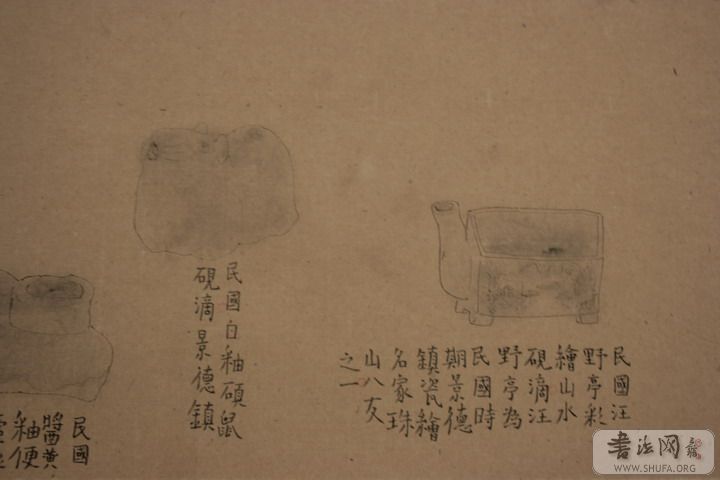 民國汪
野亭彩
繪山水
硯滴汪
野亭為
民國時
期景德
鎮瓷繪
名家珠
山八友
之一
民國白釉碩鼠
硯滴景德鎮
民國
醬黃
釉便
書法网
WWW.SHUFA.ORG